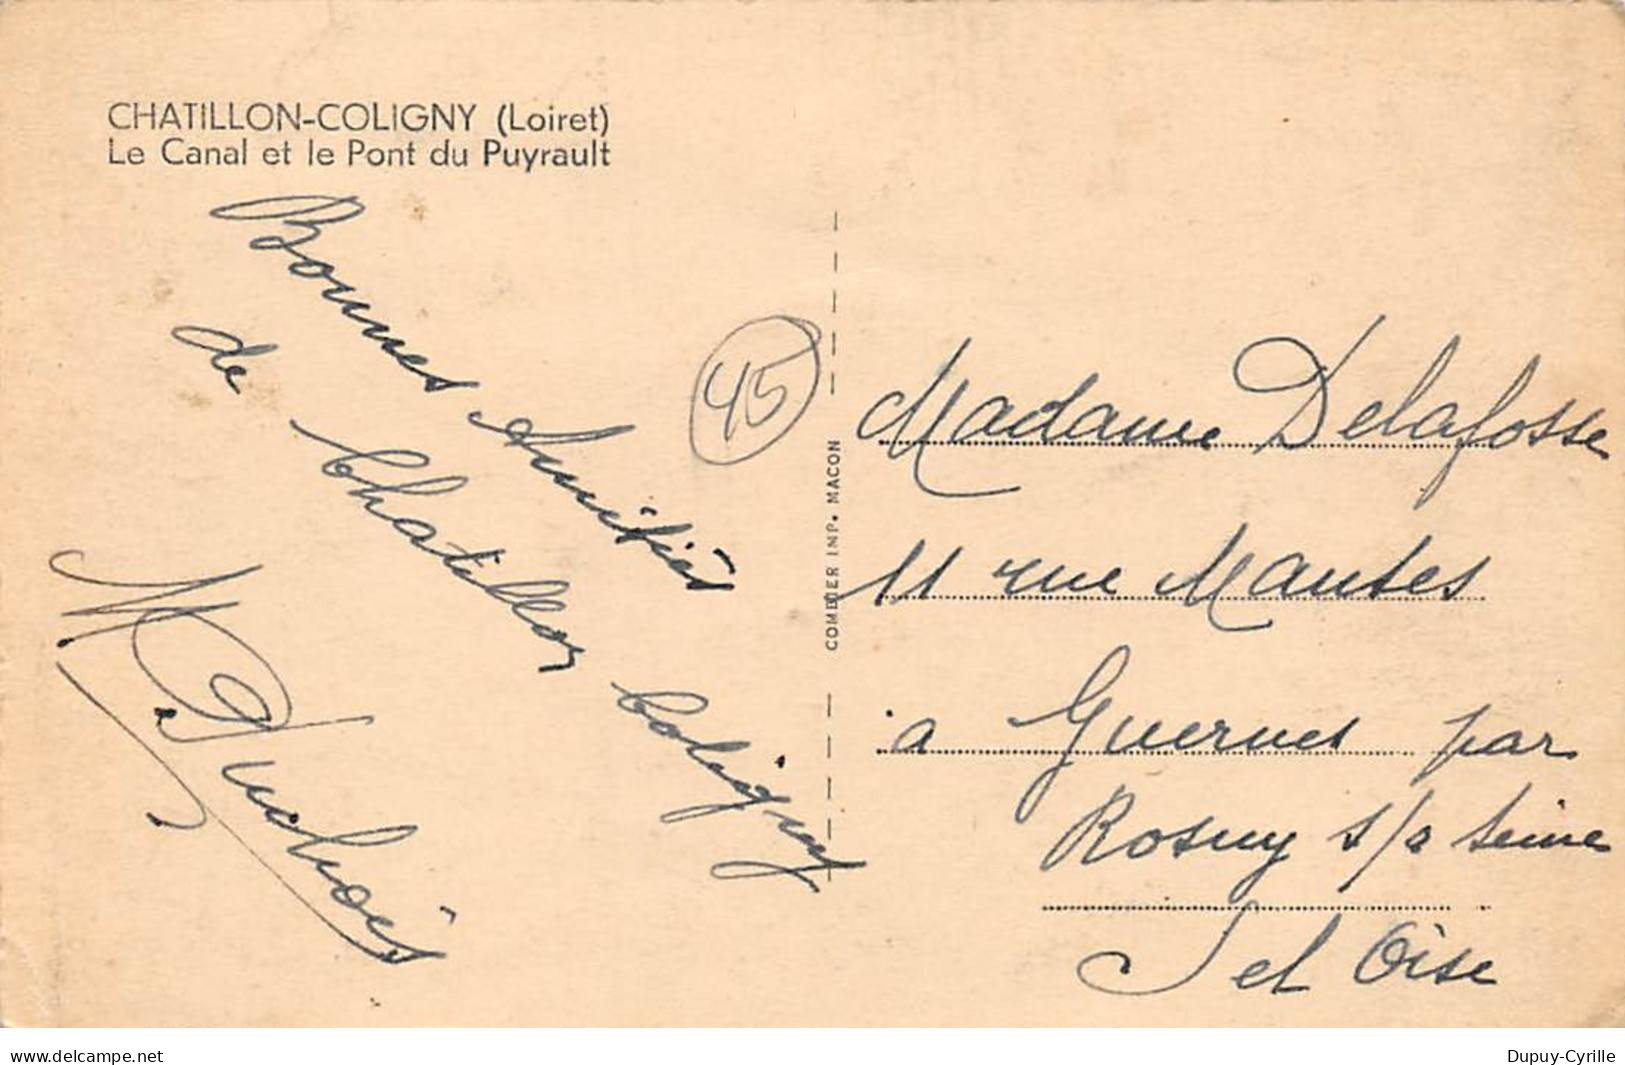 CHATILLON-COLIGNY (Loiret)
Le Canal et le Pont du Puyrault
Bonnes Amitiés
de Chatillon Coligny
M. Duchois
45
COMBIER IMP. MACON
Madame Delafosse
11 rue Mantes
a Guernes par
Rosny s/a Seine
S et Oise
www.delcampe.net
Dupuy-Cyrille